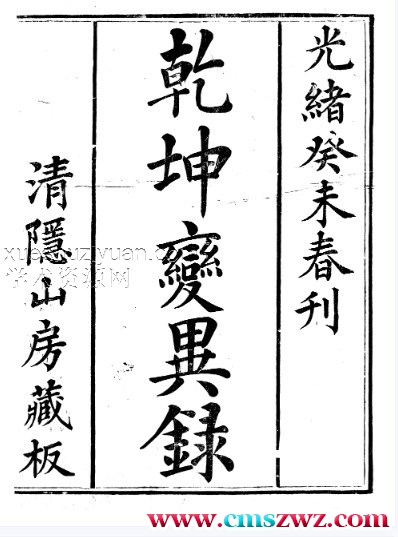 光緒癸未春刊
乾坤變異錄
清隱山房藏板
xueshuziyuan.com
学术资源网
www.cmszwz.com